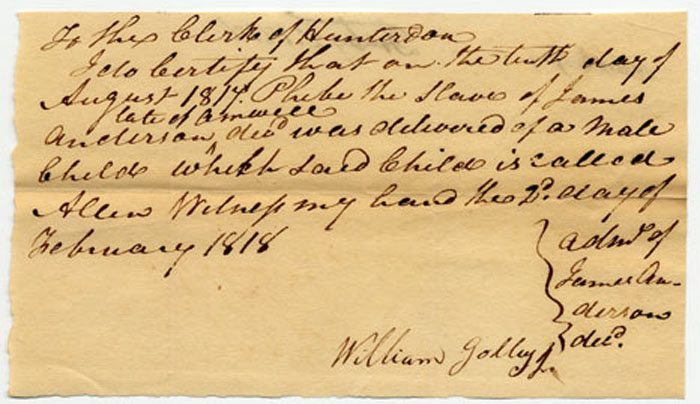 To the Clerk of Hunterdon
I do Certify that on the tenth day of
August 1817 Phebe the Slave of James
late of Amwell
Anderson decd was delivered of a Male
Child which said Child is called
Allen Witness my hand the 2d day of
February 1818
admr of
James An-
derson
decd.
William